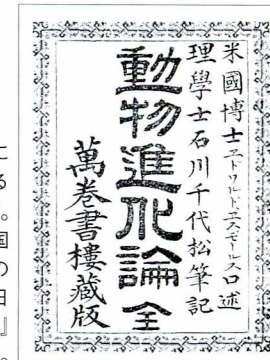 米國博士エドワルド、エス、モールス口述
理學士石川千代松筆記
動物進化論 全
萬卷書樓藏版
に
る
。
国
の
日
』
。